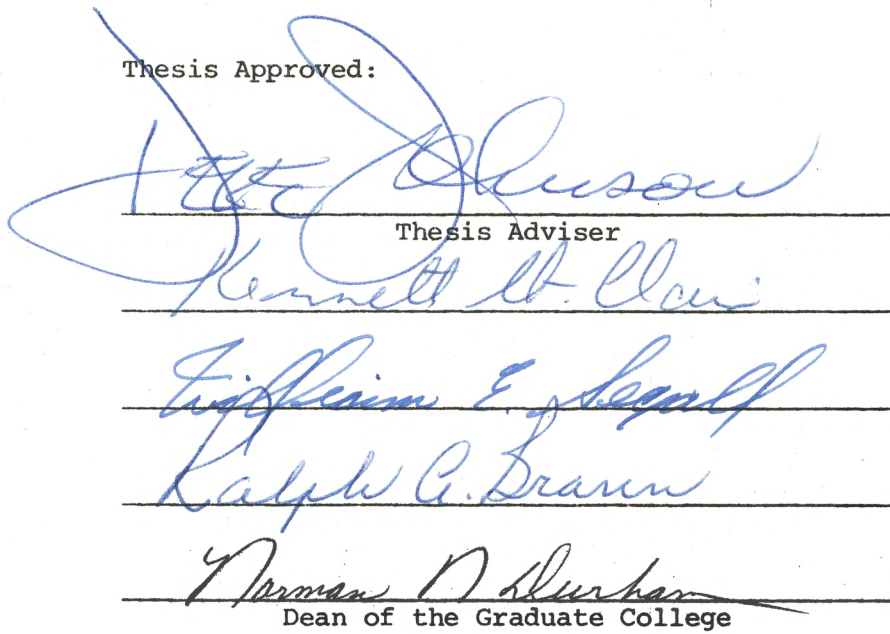 Thesis Approved:
Johnson
Thesis Adviser
Kenneth St. Clair
William E. Segall
Ralph A. Brann
Norman N Durham
Dean of the Graduate College